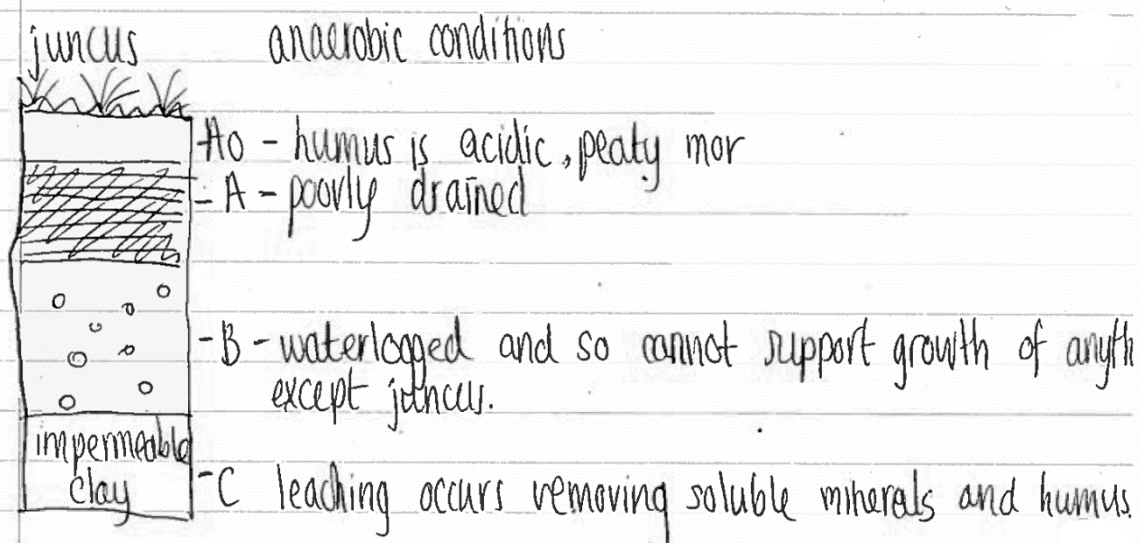 juncus anaerobic conditions
Ao - humus is acidic, peaty mor
- A - poorly drained
- B - waterlogged and so cannot support growth of anyth
except juncus.
impermeable
clay
- C leaching occurs removing soluble minerals and humus.